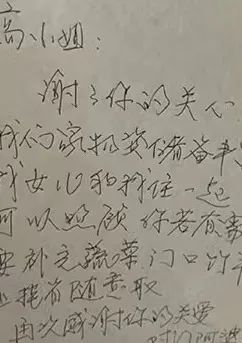 高小姐：
谢谢你的关心
我们家物资储备丰
我女儿和我住一起
可以照顾 你若有需
要补充蔬菜门口竹
有随意取
再次感谢你的关爱
对门阿波